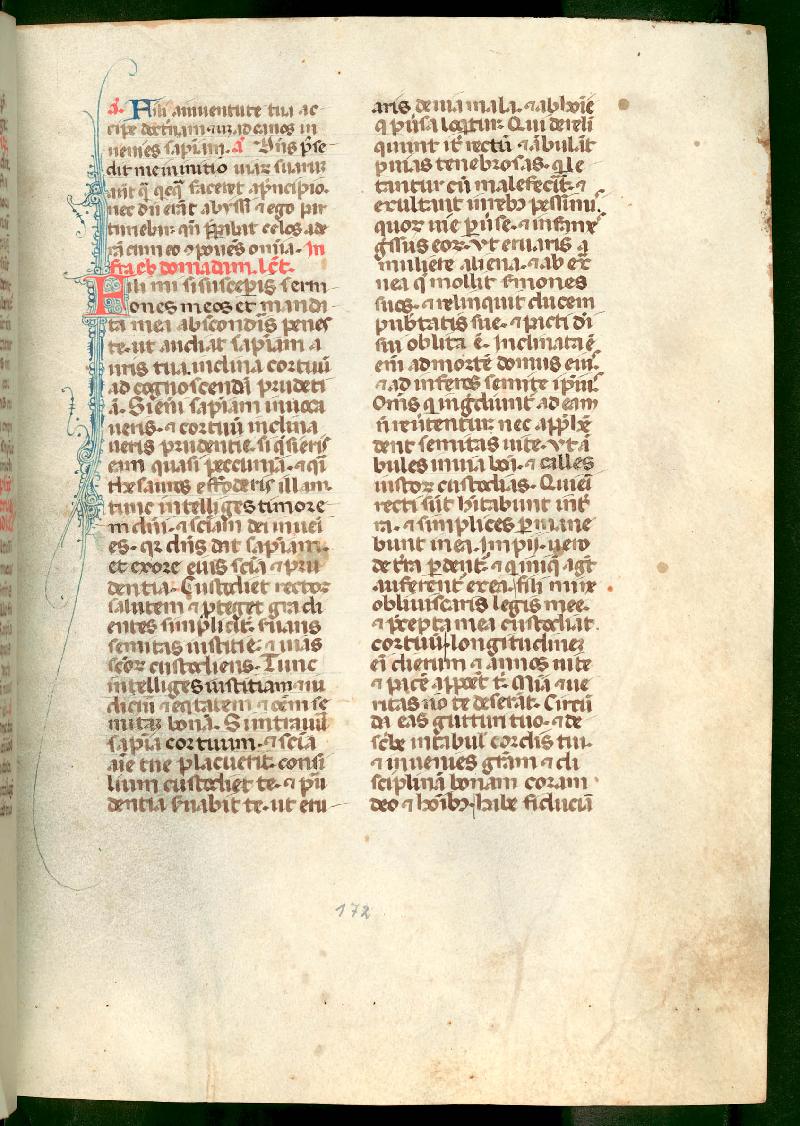 a. Fili a iuuentute tua ac
cipe doctrinam. ⁊ usq; ad canos in
uenies sapiam. a Dn̄s posse
dit me in initio uiaꝝ suarum
anteq̄ qcq̄ faceret a p̄ncipio.
nec dū erāt abyssi ⁊ ego par
turiebar. qn̄ p̄parabat celos ade
ram cum eo ɔponēs omnia. In
fra ebdomadam. lc̄t.
Fili mi si susceperis serm
ones meos et manda
ta mea absconderis penes
te. ut audiat sapiam a
uris tua. inclina cor tuū
ad cognoscendā prudeti
ā. Si em̄ sapiam inuoca
ueris. ⁊ cor tuū inclina
ueris prudentie. si q̄sieris
eam quasi peccuniā. ⁊ q̄si
thesauros effoderis illam.
tunc intelliges timore
m dn̄i. ⁊ sciam dei inuei
es. qr dn̄s dat sapiam.
et exore eius scia ⁊ pru
dentia. Custodiet rectoꝝ
salutem ⁊ proteget gradi
entes simpliciter. seruans
semitas iustitie. ⁊ uias
scoꝝ custodiens. Tunc
intelliges iustitiam ⁊ iu
dicium ⁊ eqtatem ⁊ oēm se
mitaꝫ bonā. Si intrauit
sapia cor tuum. ⁊ scia
aīe tue placuerit. consi
lium custodiet te. ⁊ pru
dentia seruabit te. ut eru
aris de uia mala. ⁊ ab hoīe
q puersa loqtur. Qui dereli
quunt iter rectū ⁊ ābulāt
per uias tenebrosas. q le
tantur cū malefecerint. ⁊
exultant in rebꝫ pessimis.
quoꝝ uie peruerse. ⁊ infames
gssus eoꝝ. Vt eruaris a
muliere aliena. ⁊ ab ex
nea q mollit smones
suos. ⁊ relinquit ducem
pubertatis sue. ⁊ pacti di
sui oblita ē. Inclinata ē.
em̄ ad mortē domus eius.
⁊ ad inferos semite ipsius.
Omīs q ingdiunt ad eam
n̄ reutentur nec appꝛhē
dent semitas uite. Vt ā
bules in uia bona. ⁊ calles
iustoꝝ custodias. Qui eni
recti sūt hītabunt in ter
ra. ⁊ simplices permane
bunt in ea. Impii uero
de terra perdentur. ⁊ q iniq agūt
auferent ex ea. fili mi ne
obliuiscaris legis mee.
⁊ precepta mea custodiat.
cor tuū longitudineꝫ
ei dierum ⁊ annos uite
⁊ pacē apponet t. Mia ⁊ ue
ritas nō te deserāt. Circū
da eas gutturi tuo. ⁊ de
scbe in tabul cordis tui.
⁊ inuenies gram ⁊ di
sciplinā bonam coram
deo ⁊ hoībꝫ. habe fiduciā
172